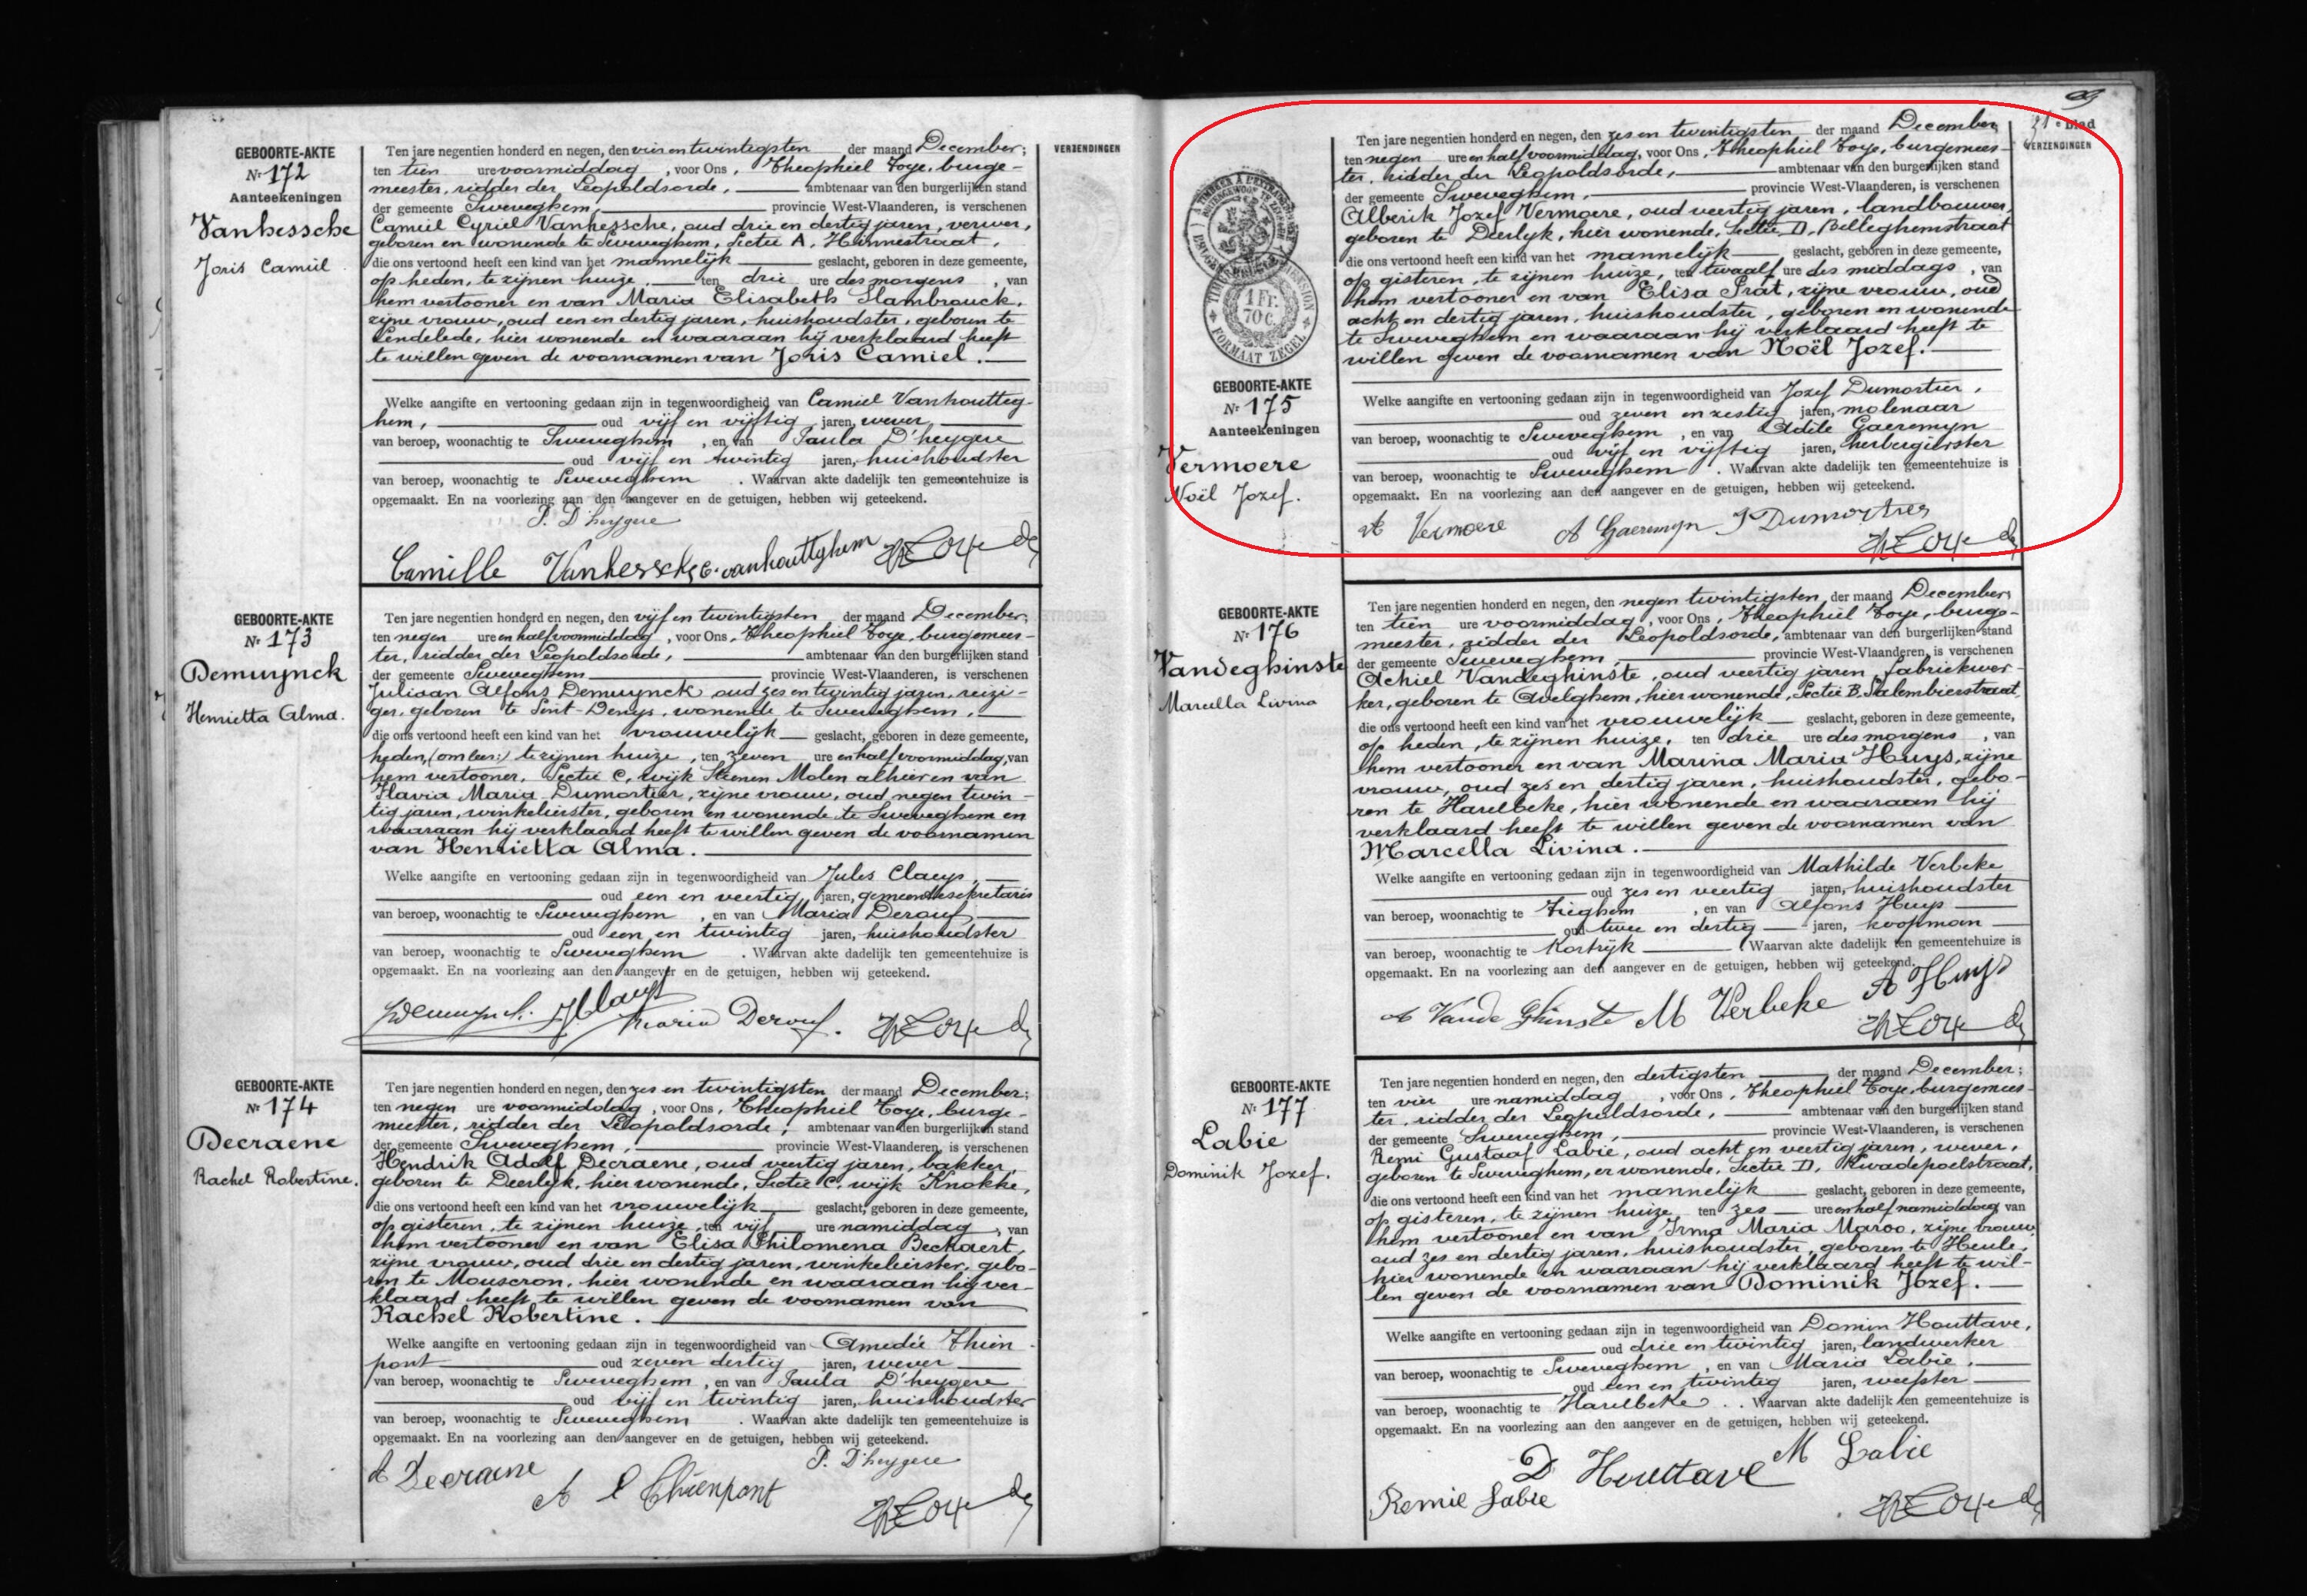 GEBOORTE-AKTE
Nr 172
Aanteekeningen
Vanhessche
Joris Camiel
Ten jare negentien honderd en negen, den vier en twintigsten der maand December;
ten tien ure voormiddag, voor Ons, Theophiel Toye, burge-
meester, ridder der Leopoldsorde, ambtenaar van den burgerlijken stand
der gemeente Sweveghem, provincie West-Vlaanderen, is verschenen
Camiel Cyriel Vanhessche, oud drie en dertig jaren, verwer,
geboren en wonende te Sweveghem, Sectie A, Hinnestraat,
die ons vertoond heeft een kind van het mannelijk geslacht, geboren in deze gemeente,
op heden, te zijnen huize, ten drie ure des morgens, van
hem vertooner en van Maria Elisabeth Slambrouck,
zijne vrouw, oud een en dertig jaren, huishoudster, geboren te
Lendelede, hier wonende en waaraan hij verklaard heeft
te willen geven de voornamen van Joris Camiel.
Welke aangifte en vertooning gedaan zijn in tegenwoordigheid van Camiel Vanhoutteg-
hem, oud vijf en vijftig jaren, wever
van beroep, woonachtig te Sweveghem, en van Paula D'heygere
oud vijf en twintig jaren, huishoudster
van beroep, woonachtig te Sweveghem. Waarvan akte dadelijk ten gemeentehuize is
opgemaakt. En na voorlezing aan den aangever en de getuigen, hebben wij geteekend.
P. D'heygere
Camille Vanhessche C. vanhouttghem
VERZENDINGEN
GEBOORTE-AKTE
Nr 173
Demuynck
Henrietta Alma.
Ten jare negentien honderd en negen, den vijf en twintigsten der maand December;
ten negen ure en half voormiddag, voor Ons, Theophiel Toye, burgemees-
ter, ridder der Leopoldsorde, ambtenaar van den burgerlijken stand
der gemeente Sweveghem provincie West-Vlaanderen, is verschenen
Juliaan Alfons Demuynck, oud zes en twintig jaren, reizi-
ger, geboren te Sint-Denys, wonende te Sweveghem,
die ons vertoond heeft een kind van het vrouwelijk geslacht, geboren in deze gemeente,
heden, te zijnen huize, ten zeven ure en half voormiddag, van
hem vertooner, Sectie C, wijk Steenen Molen alhier en van
Flavia Maria Dumortier, zijne vrouw, oud negen twin-
tig jaren, winkelierster, geboren en wonende te Sweveghem en
waaraan hij verklaard heeft te willen geven de voornamen
van Henrietta Alma.
Welke aangifte en vertooning gedaan zijn in tegenwoordigheid van Jules Claeys,
oud een en veertig jaren, gemeentesekretaris
van beroep, woonachtig te Sweveghem, en van Maria Derouf
oud een en twintig jaren, huishoudster
van beroep, woonachtig te Sweveghem. Waarvan akte dadelijk ten gemeentehuize is
opgemaakt. En na voorlezing aan den aangever en de getuigen, hebben wij geteekend.
JDemuynck. J Claeys
Maria Derouf.
GEBOORTE-AKTE
Nr 174
Decraene
Rachel Robertine.
Ten jare negentien honderd en negen, den zes en twintigsten der maand December;
ten negen ure voormiddag, voor Ons, Theophiel Toye, burge-
meester, ridder der Leopoldsorde, ambtenaar van den burgerlijken stand
der gemeente Sweveghem, provincie West-Vlaanderen, is verschenen
Hendrik Adolf Decraene, oud veertig jaren, bakker,
geboren te Deerlyk, hier wonende, Sectie C, wijk Knokke,
die ons vertoond heeft een kind van het vrouwelijk geslacht, geboren in deze gemeente,
op gisteren, te zijnen huize, ten vijf ure namiddag, van
hem vertooner en van Elisa Philomena Beckaert,
zijne vrouw, oud drie en dertig jaren, winkelierster, gebo-
ren te Mouscron, hier wonende en waaraan hij ver-
klaard heeft te willen geven de voornamen van
Rachel Robertine.
Welke aangifte en vertooning gedaan zijn in tegenwoordigheid van Amedée Thien-
pont oud zeven dertig jaren, wever
van beroep, woonachtig te Sweveghem, en van Paula D'heygere
oud vijf en twintig jaren, huishoudster
van beroep, woonachtig te Sweveghem. Waarvan akte dadelijk ten gemeentehuize is
opgemaakt. En na voorlezing aan den aangever en de getuigen, hebben wij geteekend.
P. D'heygere
A Decraene
A Thienpont
21e blad
VERZENDINGEN
1 Fr. 70 c.
FORMAAT ZEGEL
GEBOORTE-AKTE
Nr 175
Aanteekeningen
Vermoere
Noël Jozef.
Ten jare negentien honderd en negen, den zes en twintigsten der maand December,
ten negen ure en half voormiddag, voor Ons, Theophiel Toye, burgemees-
ter, ridder der Leopoldsorde, ambtenaar van den burgerlijken stand
der gemeente Sweveghem, provincie West-Vlaanderen, is verschenen
Alberik Jozef Vermoere, oud veertig jaren, landbouwer,
geboren te Deerlyk, hier wonende, Sectie D, Belleghemstraat
die ons vertoond heeft een kind van het mannelijk geslacht, geboren in deze gemeente,
op gisteren, te zijnen huize, ten twaalf ure des middags, van
hem vertooner en van Elisa Prat, zijne vrouw, oud
acht en dertig jaren, huishoudster, geboren en wonende
te Sweveghem en waaraan hij verklaard heeft te
willen geven de voornamen van Noël Jozef.
Welke aangifte en vertooning gedaan zijn in tegenwoordigheid van Jozef Dumortier,
oud zeven en zestig jaren, molenaar
van beroep, woonachtig te Sweveghem, en van Adile Gaeremyn
oud vijf en vijftig jaren, herbergierster
van beroep, woonachtig te Sweveghem. Waarvan akte dadelijk ten gemeentehuize is
opgemaakt. En na voorlezing aan den aangever en de getuigen, hebben wij geteekend.
A Vermoere A Gaeremyn J Dumortier
GEBOORTE-AKTE
Nr 176
Vandeghinste
Marcella Livina
Ten jare negentien honderd en negen, den negen twintigsten der maand December,
ten tien ure voormiddag, voor Ons, Theophiel Toye, burge-
meester, ridder der Leopoldsorde, ambtenaar van den burgerlijken stand
der gemeente Sweveghem, provincie West-Vlaanderen, is verschenen
Achiel Vandeghinste, oud veertig jaren, fabriekwer-
ker, geboren te Avelghem, hier wonende, Sectie B, Salembierstraat,
die ons vertoond heeft een kind van het vrouwelijk geslacht, geboren in deze gemeente,
op heden, te zijnen huize, ten drie ure des morgens, van
hem vertooner en van Marina Maria Huys, zijne
vrouw, oud zes en dertig jaren, huishoudster, gebo-
ren te Harelbeke, hier wonende en waaraan hij
verklaard heeft te willen geven de voornamen van
Marcella Livina.
Welke aangifte en vertooning gedaan zijn in tegenwoordigheid van Mathilde Verbeke
oud zes en veertig jaren, huishoudster
van beroep, woonachtig te Tieghem, en van Alfons Huys
oud twee en dertig jaren, koopman
van beroep, woonachtig te Kortrijk Waarvan akte dadelijk ten gemeentehuize is
opgemaakt. En na voorlezing aan den aangever en de getuigen, hebben wij geteekend.
A Vande Ghinste M Verbeke A Huys
GEBOORTE-AKTE
Nr 177
Labie
Dominik Jozef.
Ten jare negentien honderd en negen, den dertigsten der maand December;
ten vier ure namiddag, voor Ons, Theophiel Toye, burgemees-
ter, ridder der Leopoldsorde, ambtenaar van den burgerlijken stand
der gemeente Sweveghem, provincie West-Vlaanderen, is verschenen
Remi Gustaaf Labie, oud acht en veertig jaren, wever,
geboren te Sweveghem, er wonende, Sectie D, Kwadepoelstraat,
die ons vertoond heeft een kind van het mannelijk geslacht, geboren in deze gemeente,
op gisteren, te zijnen huize, ten zes ure en half namiddag van
hem vertooner en van Irma Maria Maroo, zijne vrouw,
oud zes en dertig jaren, huishoudster, geboren te Heule,
hier wonende en waaraan hij verklaard heeft te wil-
len geven de voornamen van Dominik Jozef.
Welke aangifte en vertooning gedaan zijn in tegenwoordigheid van Domin Houttave,
oud drie en twintig jaren, landwerker
van beroep, woonachtig te Sweveghem, en van Maria Labie,
oud een en twintig jaren, weefster
van beroep, woonachtig te Harelbeke. Waarvan akte dadelijk ten gemeentehuize is
opgemaakt. En na voorlezing aan den aangever en de getuigen, hebben wij geteekend.
D Houttave M Labie
Remie Labie